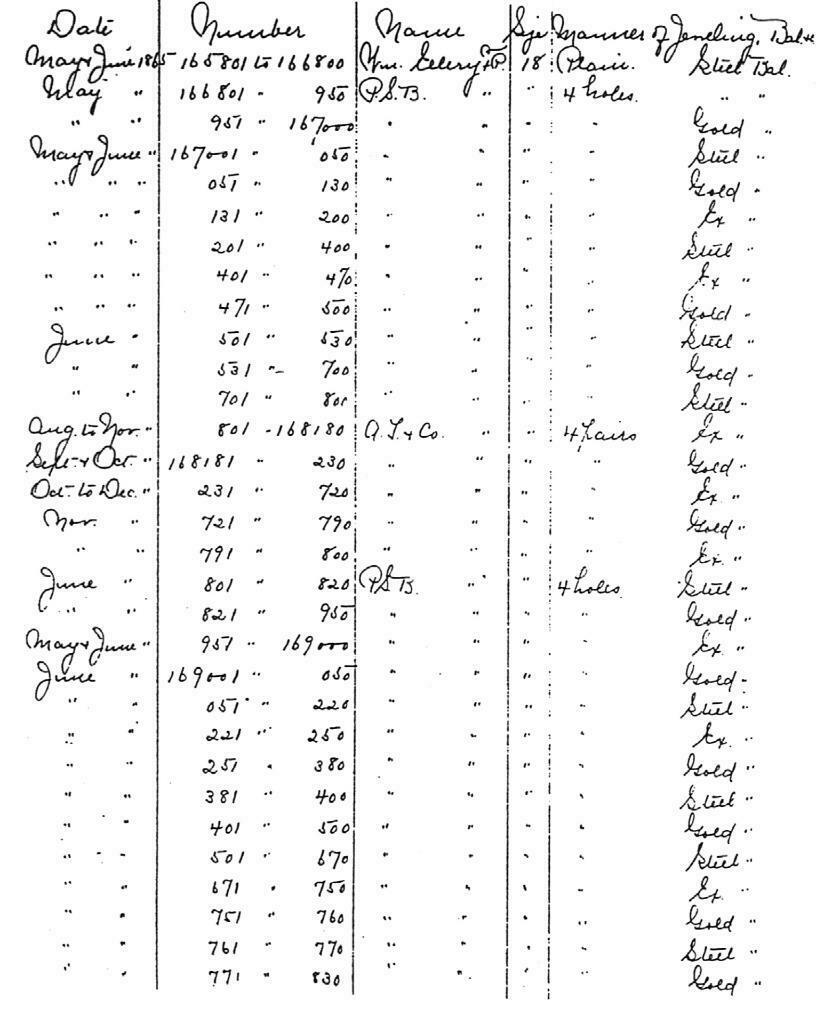 Date Number Name Size Manner of Jeweling, Bal &c
May & June 1865 165801 to 166800 Wm. Ellery F.P. 18 Plain. Steel Bal.
May " 166801 " 950 P.S.B. " " 4 holes. " "
" " 951 " 167000 " " " " Gold "
May & June " 167001 " 050 " " " " Steel "
" " " 051 " 130 " " " " Gold "
" " " 131 " 200 " " " " Ex "
" " " 201 " 400 " " " " Steel "
" " " 401 " 470 " " " " Ex "
" " " 471 " 500 " " " " Gold "
June " 501 " 530 " " " " Steel "
" " 531 " 700 " " " " Gold "
" " 701 " 800 " " " " Steel "
Aug. to Nov. " 801 - 168180 A. T. & Co. " " 4 pairs Ex "
Sept. & Oct. " 168181 " 230 " " " " Gold "
Oct. to Dec. " 231 " 720 " " " " Ex "
Nov. " 721 " 790 " " " " Gold "
" " 791 " 800 " " " " Ex. "
June " 801 " 820 P.S.B. " " 4 holes. Steel "
" " 821 " 950 " " " " Gold "
May & June " 951 " 169000 " " " " Ex. "
June " 169001 " 050 " " " " Gold "
" " 051 " 220 " " " " Steel "
" " 221 " 250 " " " " Ex. "
" " 251 " 380 " " " " Gold "
" " 381 " 400 " " " " Steel "
" " 401 " 500 " " " " Gold "
" " 501 " 670 " " " " Steel "
" " 671 " 750 " " " " Ex. "
" " 751 " 760 " " " " Gold "
" " 761 " 770 " " " " Steel "
" " 771 " 830 " " " " Gold "